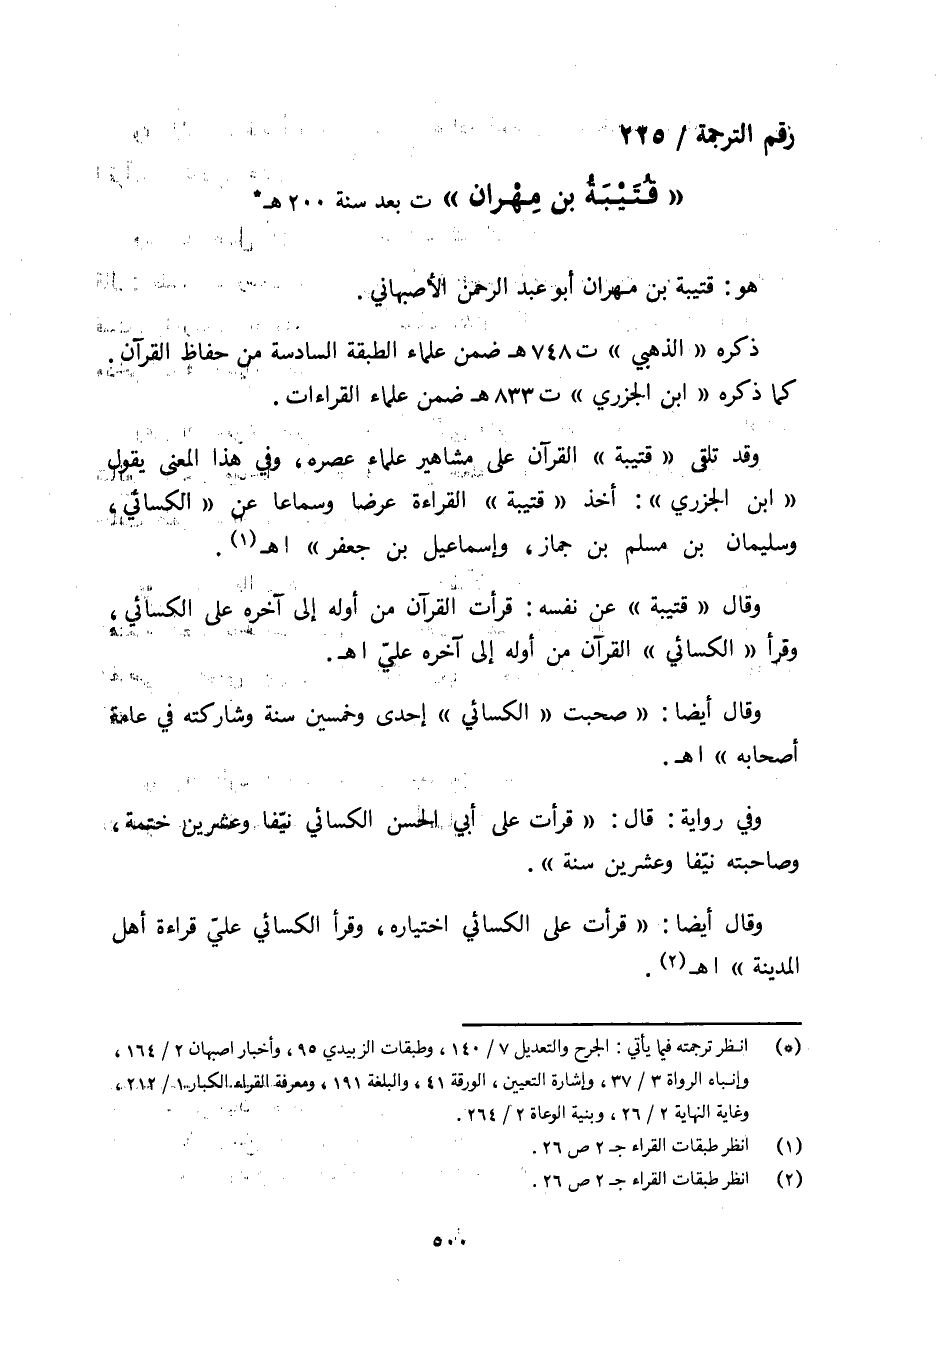 رقم الترجمة / ٢٢٥
« قُتَيْبَةُ بن مِهْران » ت بعد سنة ٢٠٠ هـ*
هو : قتيبة بن مهران أبو عبد الرحمن الأصبهاني .
ذكره « الذهبي » ت ٧٤٨ هـ ضمن علماء الطبقة السادسة من حفاظ القرآن .
كما ذكره « ابن الجزري » ت ٨٣٣ هـ ضمن علماء القراءات .
وقد تلقى « قتيبة » القرآن على مشاهير علماء عصره ، وفي هذا المعنى يقول
« ابن الجزري » : أخذ « قتيبة » القراءة عرضا وسماعا عن « الكسائي ،
وسليمان بن مسلم بن جماز ، وإسماعيل بن جعفر » ا هـ (١) .
وقال « قتيبة » عن نفسه : قرأت القرآن من أوله إلى آخره على الكسائي ،
وقرأ « الكسائي » القرآن من أوله إلى آخره عليّ ا هـ .
وقال أيضا : « صحبت « الكسائي » إحدى وخمسين سنة وشاركته في عامة
أصحابه » ا هـ .
وفي رواية : قال : « قرأت على أبي الحسن الكسائي نيّفا وعشرين ختمة ،
وصاحبته نيّفا وعشرين سنة » .
وقال أيضا : « قرأت على الكسائي اختياره ، وقرأ الكسائي عليّ قراءة أهل
المدينة » ا هـ (٢) .
(*) انظر ترجمته فيما يأتي : الجرح والتعديل ٧ / ١٤٠ ، وطبقات الزبيدي ٩٥ ، وأخبار اصبهان ٢ / ١٦٤ ،
وإنباه الرواة ٣ / ٣٧ ، وإشارة التعيين ، الورقة ٤١ ، والبلغة ١٩١ ، ومعرفة القراء الكبار ١ / ٢١٢ ،
وغاية النهاية ٢ / ٢٦ ، وبنية الوعاة ٢ / ٢٦٤ .
(١) انظر طبقات القراء جـ ٢ ص ٢٦ .
(٢) انظر طبقات القراء جـ ٢ ص ٢٦ .
٥٠٠